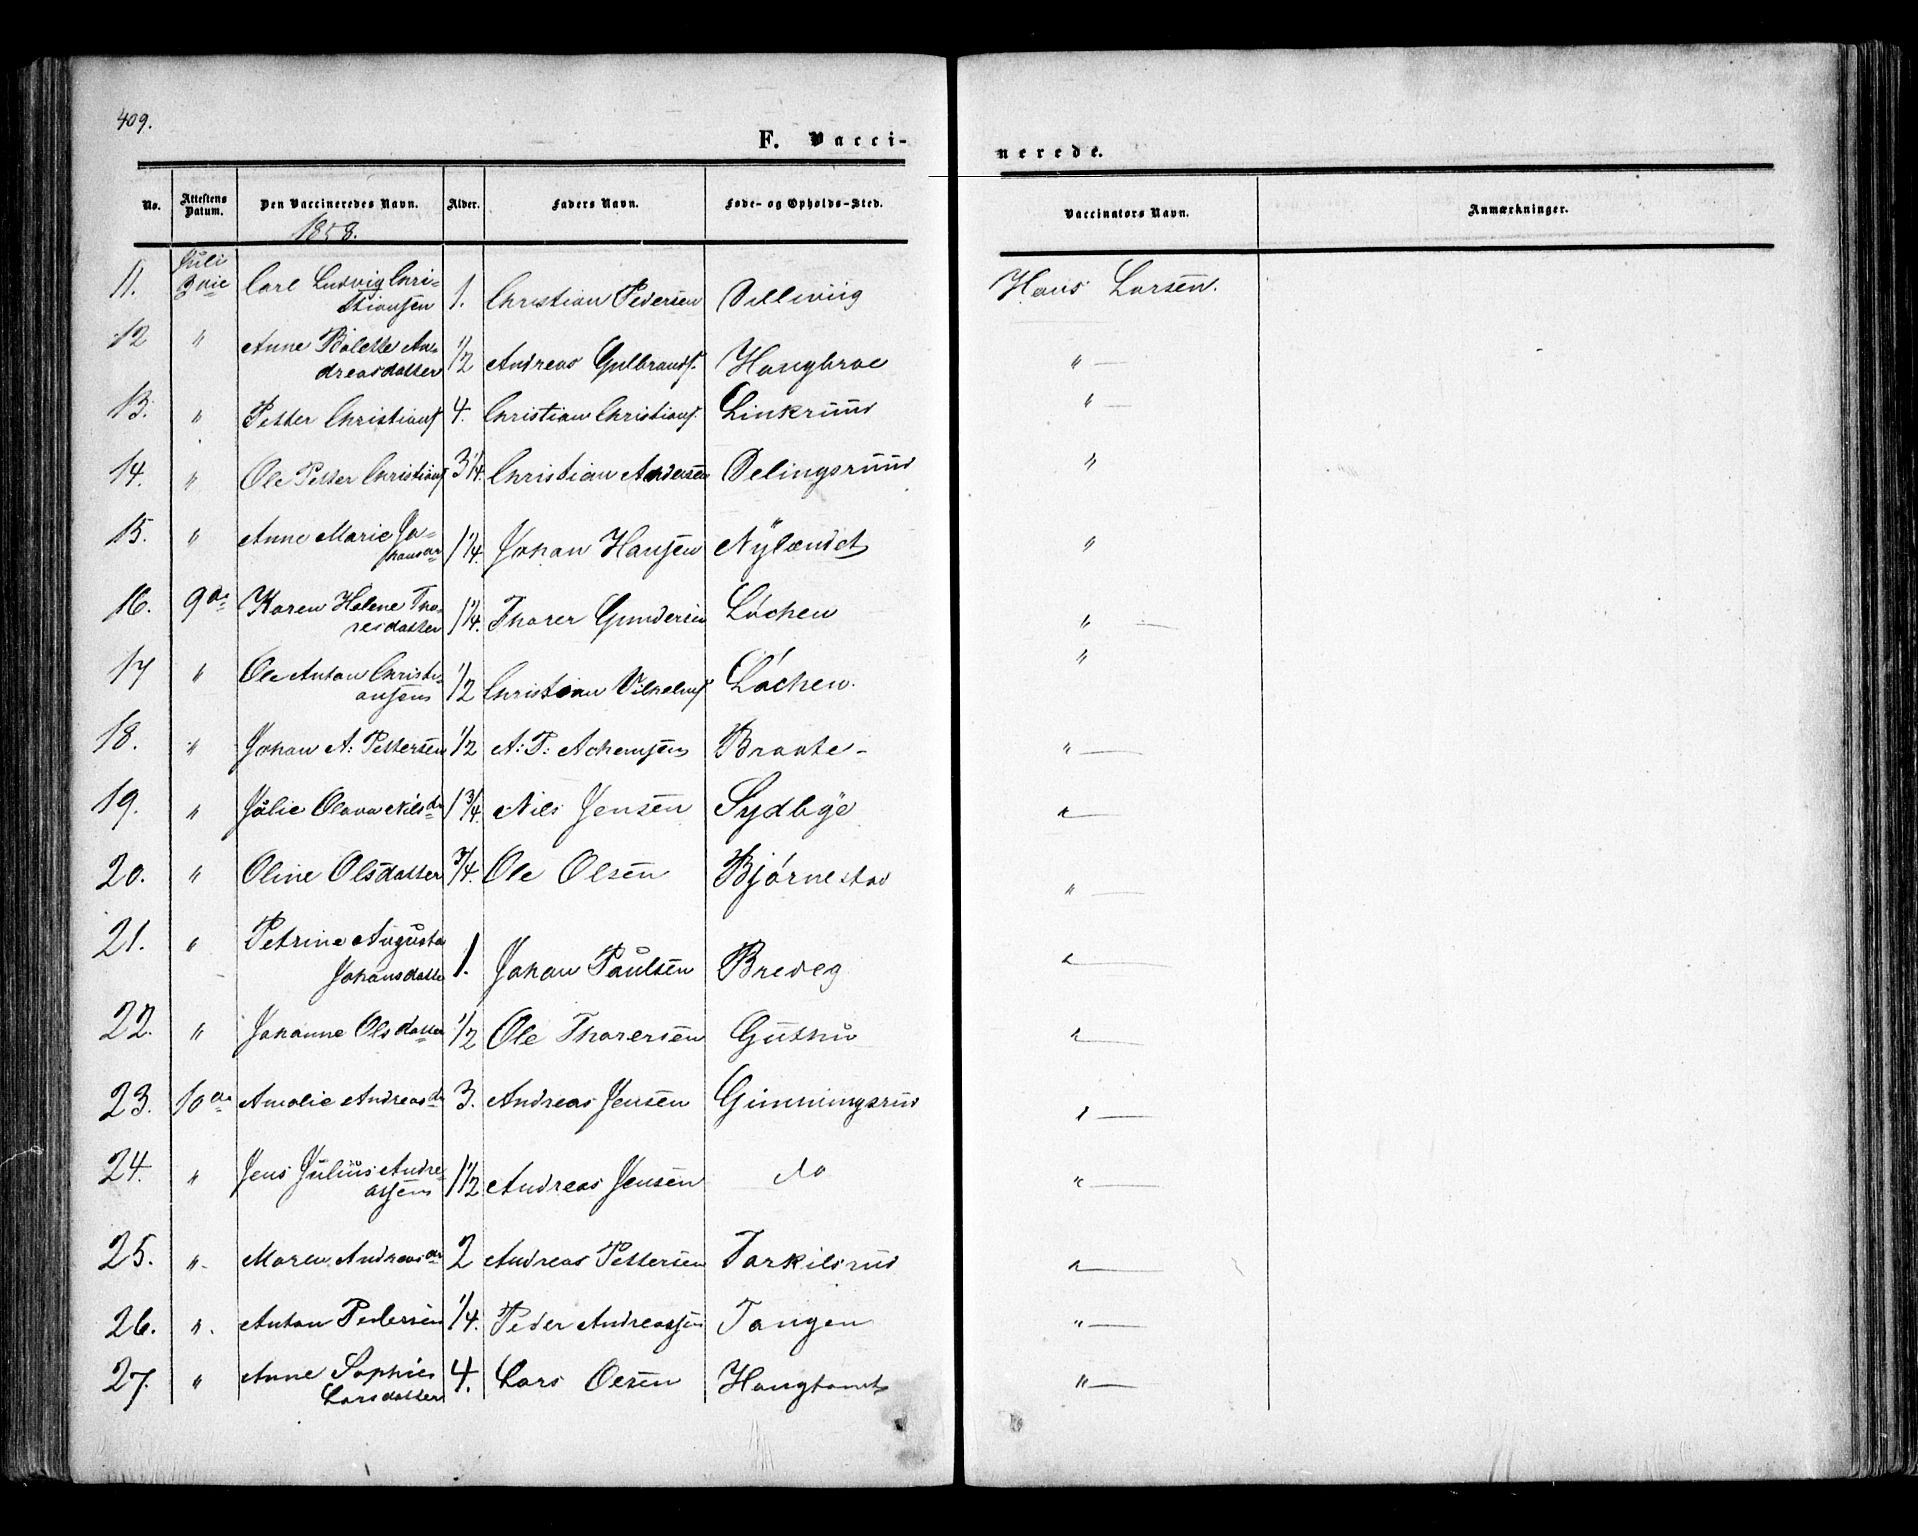 409.
F. Vacci-
nerede.
No. Attestens Datum. Den Vaccineredes Navn. Alder. Faders Navn. Føde- og Opholds-Sted. Vaccinators Navn. Anmærkninger.
1858.
Juli
11. Carl Ludvig Chri-
stiansen 1. Christian Pedersen Dilleviig Hans Larsen.
12 " Anne Bolette An-
dreasdatter 1/2 Andreas Gulbrands. Haugbroe " —
13. " Petter Christians 4. Christian Christians. Linkruud " —
14. " Ole Petter Christians 3 1/4. Christian Andersen Delingsruud "
15. " Anne Marie Jo-
hansdr 1 1/4. Johan Hansen Nÿlændet "
16. 9de Karen Helene Tho-
resdatter 1 1/4. Thorer Gundersen Løchen " —
17 " Ole Anton Christi-
ansen 1/2 Christian Vilhelms Løchen. "
18. " Johan A: Pettersen 1/2 A: P: Achemsen Braate- " —
19. " Julie Olava Nilsdr 1 3/4. Nils Jensen Sydbÿe " —
20. " Oline Olsdatter 3/4. Ole Olsen Bjørnestad " —
21. " Petrine Augusta
Johansdatter 1. Johan Paulsen Bredeg " —
22. " Johanne Olsdatter 1/2 Ole Thorersen Guthu " —
23. 10de Amalie Andreasdr 3. Andreas Jensen Gimmingsrud " —
24. " Jens Julius Andre-
assen 1 1/2 Andreas Jensen do " —
25. " Maren Andreasdr 2 Andreas Pettersen Tarkilsrud " —
26. " Anton Pedersen 1/4. Peder Andreassen Tangen " —
27. " Anne Sophie
Larsdatter 4. Lars Olsen Haugtomt " —